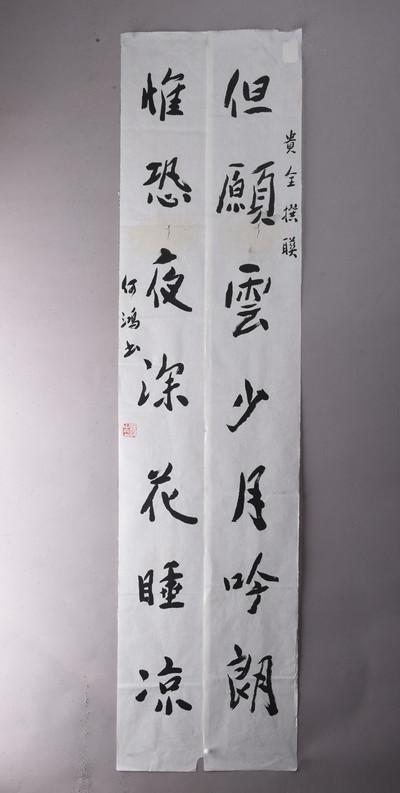 但願雲少月吟朗
貴全撰聯
惟恐夜深花睡凉
何鴻書